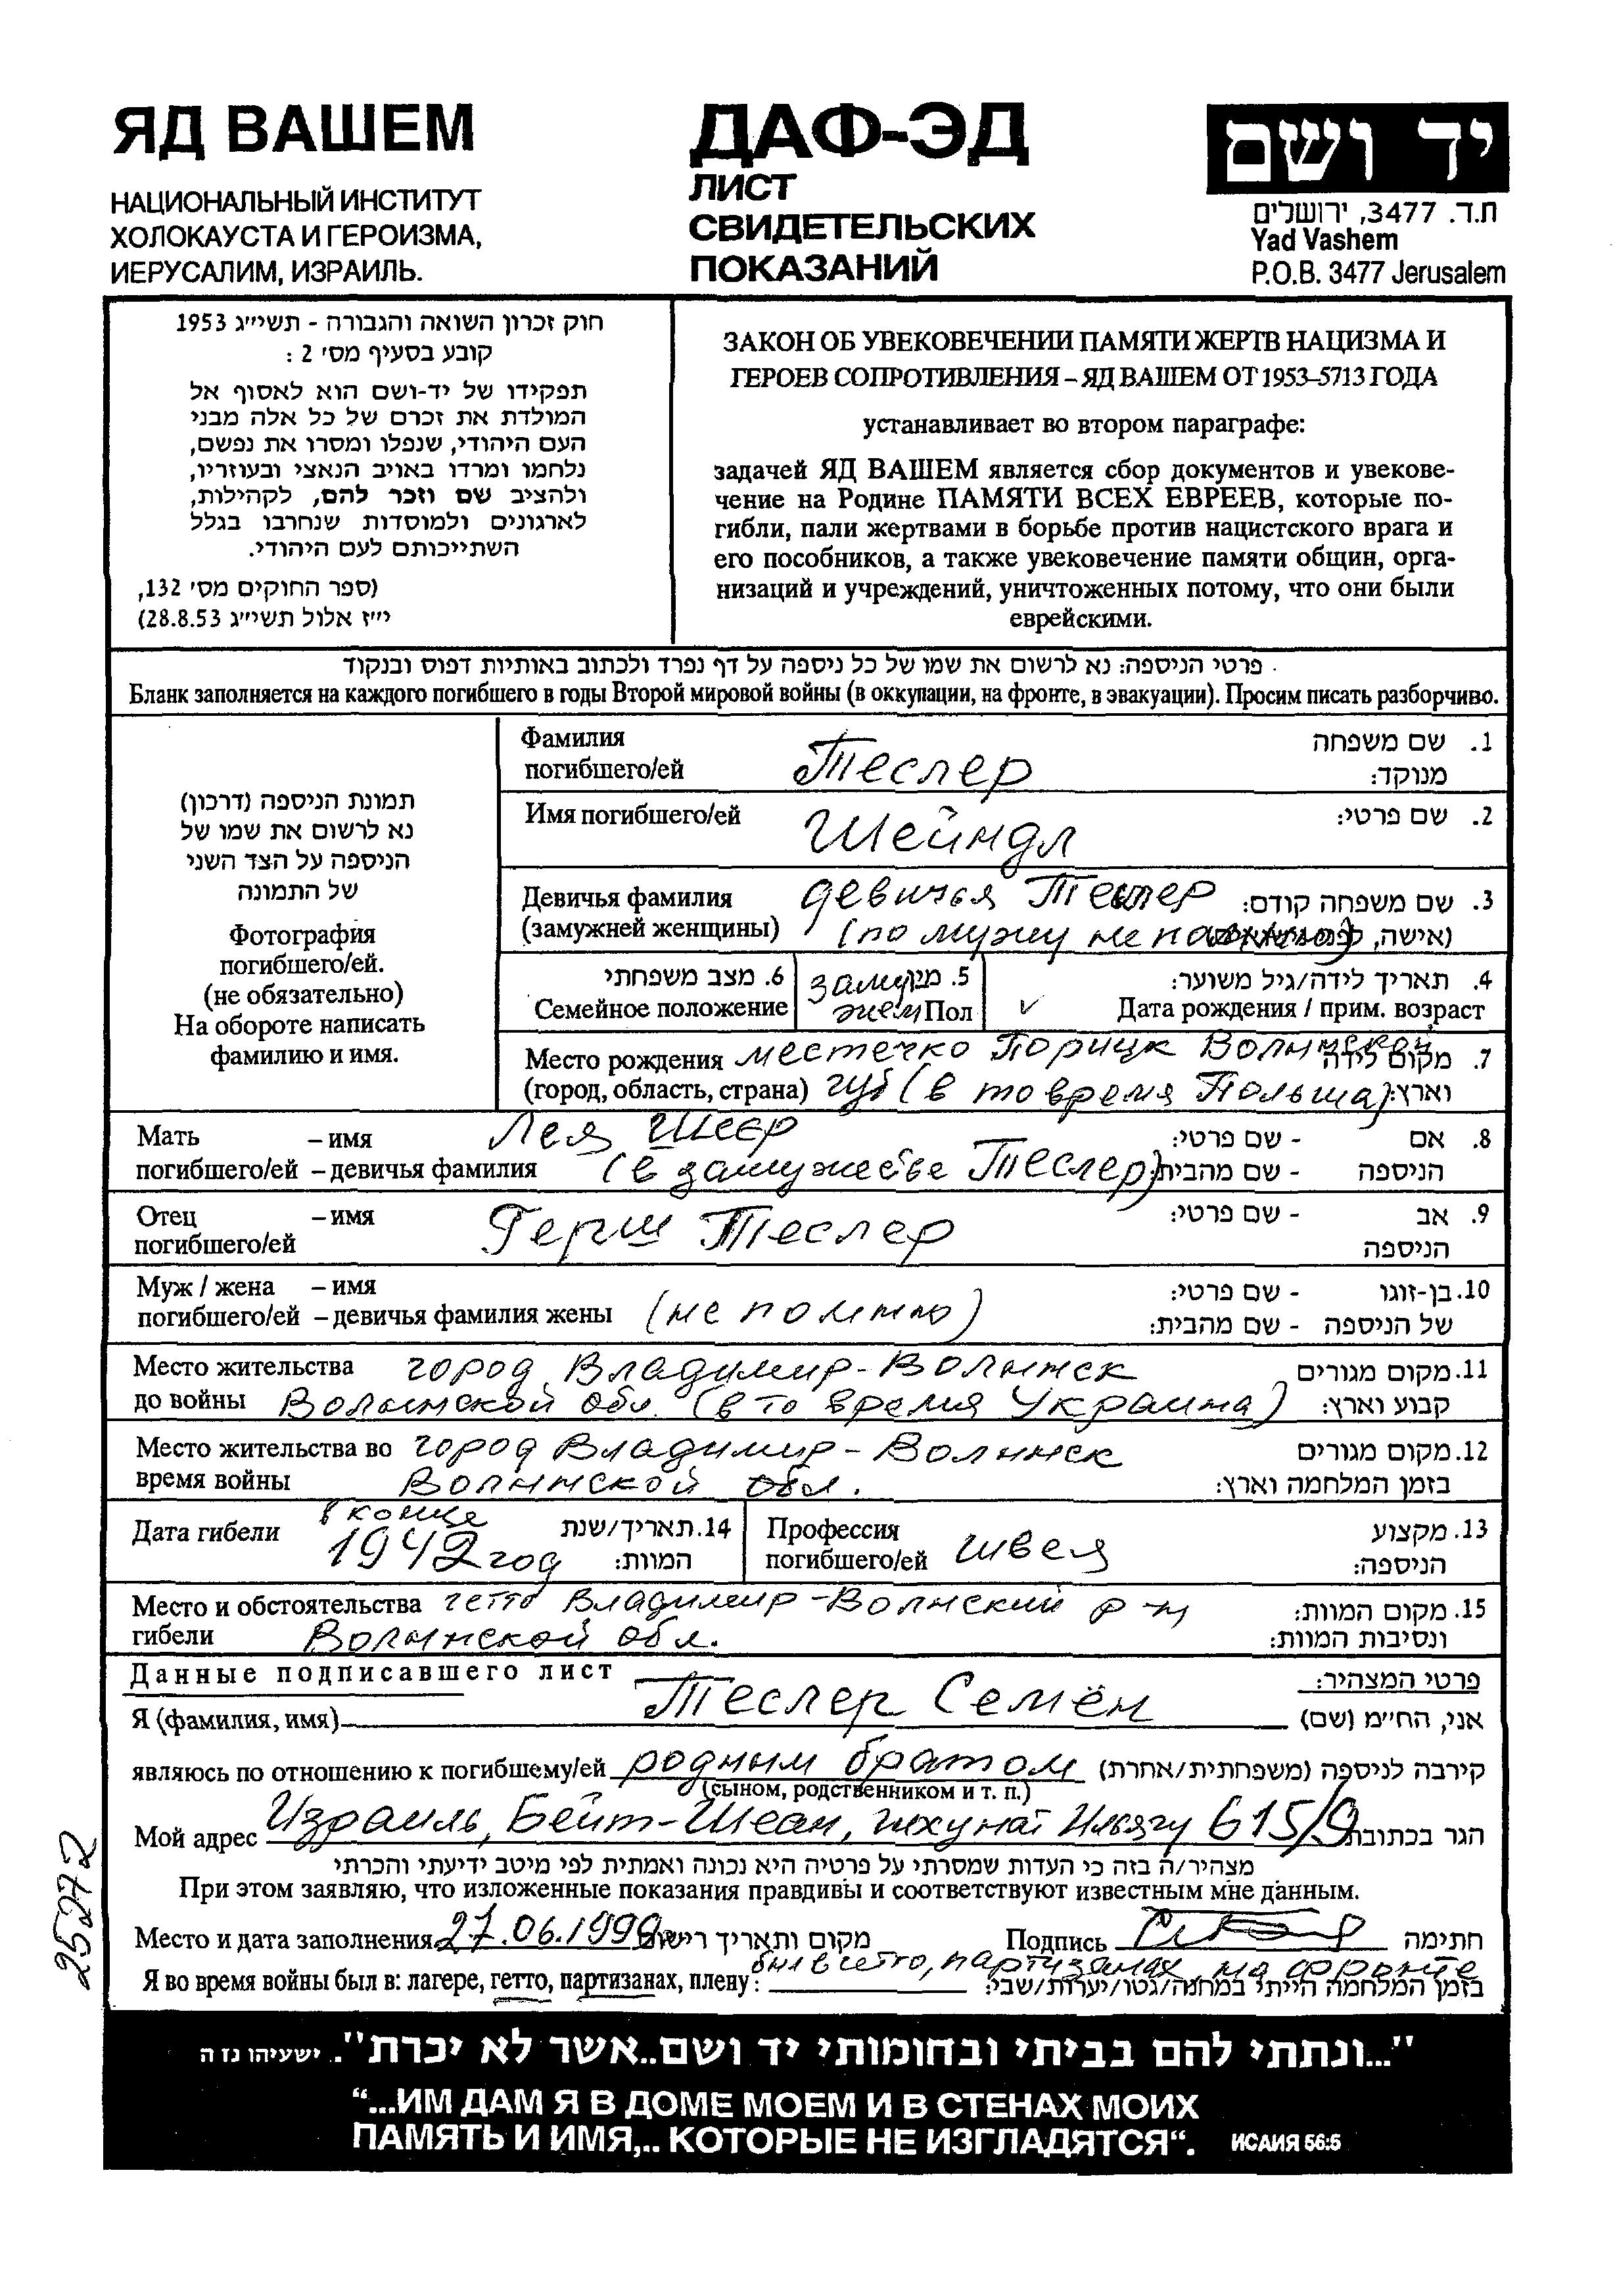 ЯД ВАШЕМ
НАЦИОНАЛЬНЫЙ ИНСТИТУТ
ХОЛОКАУСТА И ГЕРОИЗМА,
ИЕРУСАЛИМ, ИЗРАИЛЬ.
ДАФ-ЭД
ЛИСТ
СВИДЕТЕЛЬСКИХ
ПОКАЗАНИЙ
יד ושם
ת.ד. 3477, ירושלים
Yad Vashem
P.O.B. 3477 Jerusalem
חוק זכרון השואה והגבורה - תשי״ג 1953
קובע בסעיף מס׳ 2 :
תפקידו של יד-ושם הוא לאסוף אל
המולדת את זכרם של כל אלה מבני
העם היהודי, שנפלו ומסרו את נפשם,
נלחמו ומרדו באויב הנאצי ובעוזריו,
ולהציב שם וזכר להם, לקהילות,
לארגונים ולמוסדות שנחרבו בגלל
השתייכותם לעם היהודי.
(ספר החוקים מס׳ 132,
י״ז אלול תשי״ג 28.8.53)
ЗАКОН ОБ УВЕКОВЕЧЕНИИ ПАМЯТИ ЖЕРТВ НАЦИЗМА И
ГЕРОЕВ СОПРОТИВЛЕНИЯ – ЯД ВАШЕМ ОТ 1953–5713 ГОДА
устанавливает во втором параграфе:
задачей ЯД ВАШЕМ является сбор документов и увекове-
чение на Родине ПАМЯТИ ВСЕХ ЕВРЕЕВ, которые по-
гибли, пали жертвами в борьбе против нацистского врага и
его пособников, а также увековечение памяти общин, орга-
низаций и учреждений, уничтоженных потому, что они были
еврейскими.
פרטי הניספה: נא לרשום את שמו של כל ניספה על דף נפרד ולכתוב באותיות דפוס ובנקוד
Бланк заполняется на каждого погибшего в годы Второй мировой войны (в оккупации, на фронте, в эвакуации). Просим писать разборчиво.
תמונת הניספה (דרכון)
נא לרשום את שמו של
הניספה על הצד השני
של התמונה
Фотография
погибшего/ей.
(не обязательно)
На обороте написать
фамилию и имя.
Фамилия 1. שם משפחה
погибшего/ей Теслер מנוקד:
Имя погибшего/ей Шейндл 2. שם פרטי:
Девичья фамилия девичья Теслер 3. שם משפחה קודם:
(замужней женщины) (по мужу не помню) (אישה,
6. מצב משפחתי замужем 5. מין 4. תאריך לידה/גיל משוער:
Семейное положение Пол ✓ Дата рождения / прим. возраст
Место рождения местечко Порицк Волынской 7. מקום לידה
(город, область, страна) губ (в то время Польша) וארץ:
Мать – имя Лея Шеер - שם פרטי: 8. אם
погибшего/ей – девичья фамилия (в замужестве Теслер) - שם מהבית: הניספה
Отец – имя Герш Теслер - שם פרטי: 9. אב
погибшего/ей הניספה
Муж / жена – имя - שם פרטי: 10. בן-זוגו
погибшего/ей – девичья фамилия жены (не помню) - שם מהבית: של הניספה
Место жительства город Владимир-Волынск 11. מקום מגורים
до войны Волынской обл. (в то время Украина) קבוע וארץ:
Место жительства во город Владимир-Волынск 12. מקום מגורים
время войны Волынской обл. בזמן המלחמה וארץ:
Дата гибели в конце 14. תאריך/שנת Профессия 13. מקצוע
1942 год המוות: погибшего/ей швея הניספה:
Место и обстоятельства гетто Владимир-Волнский р-н 15. מקום המוות:
гибели Волынской обл. ונסיבות המוות:
Данные подписавшего лист פרטי המצהיר:
Я (фамилия, имя) Теслер Семён אני, הח״מ (שם)
являюсь по отношению к погибшему/ей родным братом קירבה לניספה (משפחתית/אחרת)
(сыном, родственником и т. п.)
Мой адрес Израиль, Бейт-Шеан, шхунат Ильягу 615/9 הגר בכתובת
מצהיר/ה בזה כי העדות שמסרתי על פרטיה היא נכונה ואמתית לפי מיטב ידיעתי והכרתי
При этом заявляю, что изложенные показания правдивы и соответствуют известным мне данным.
Место и дата заполнения 27.06.1999г. מקום ותאריך רישום Подпись חתימה
Я во время войны был в: лагере, гетто, партизанах, плену: был в гетто, партизанах, на фронте בזמן המלחמה הייתי במחנה/גטו/יערות/שבי:
25272
"...ונתתי להם בביתי ובחומותי יד ושם..אשר לא יכרת". ישעיהו נז ה
“...ИМ ДАМ Я В ДОМЕ МОЕМ И В СТЕНАХ МОИХ
ПАМЯТЬ И ИМЯ,.. КОТОРЫЕ НЕ ИЗГЛАДЯТСЯ“. ИСАИЯ 56:5